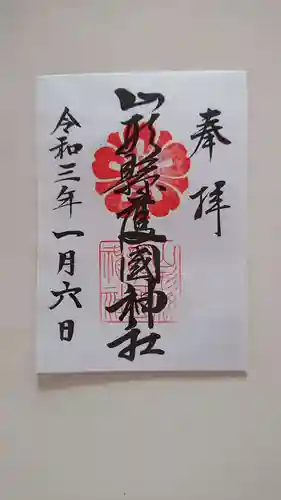 奉拝
山形縣護國神社
令和三年一月六日